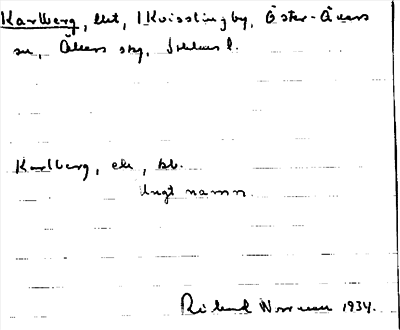 Karlberg, lht, i Kvisslingby, Öster-Åkers
sn, Åkers skg, Sthlms l.
Karlberg, ele, bb.
Ungt namn.
Rickard Norrman 1934.